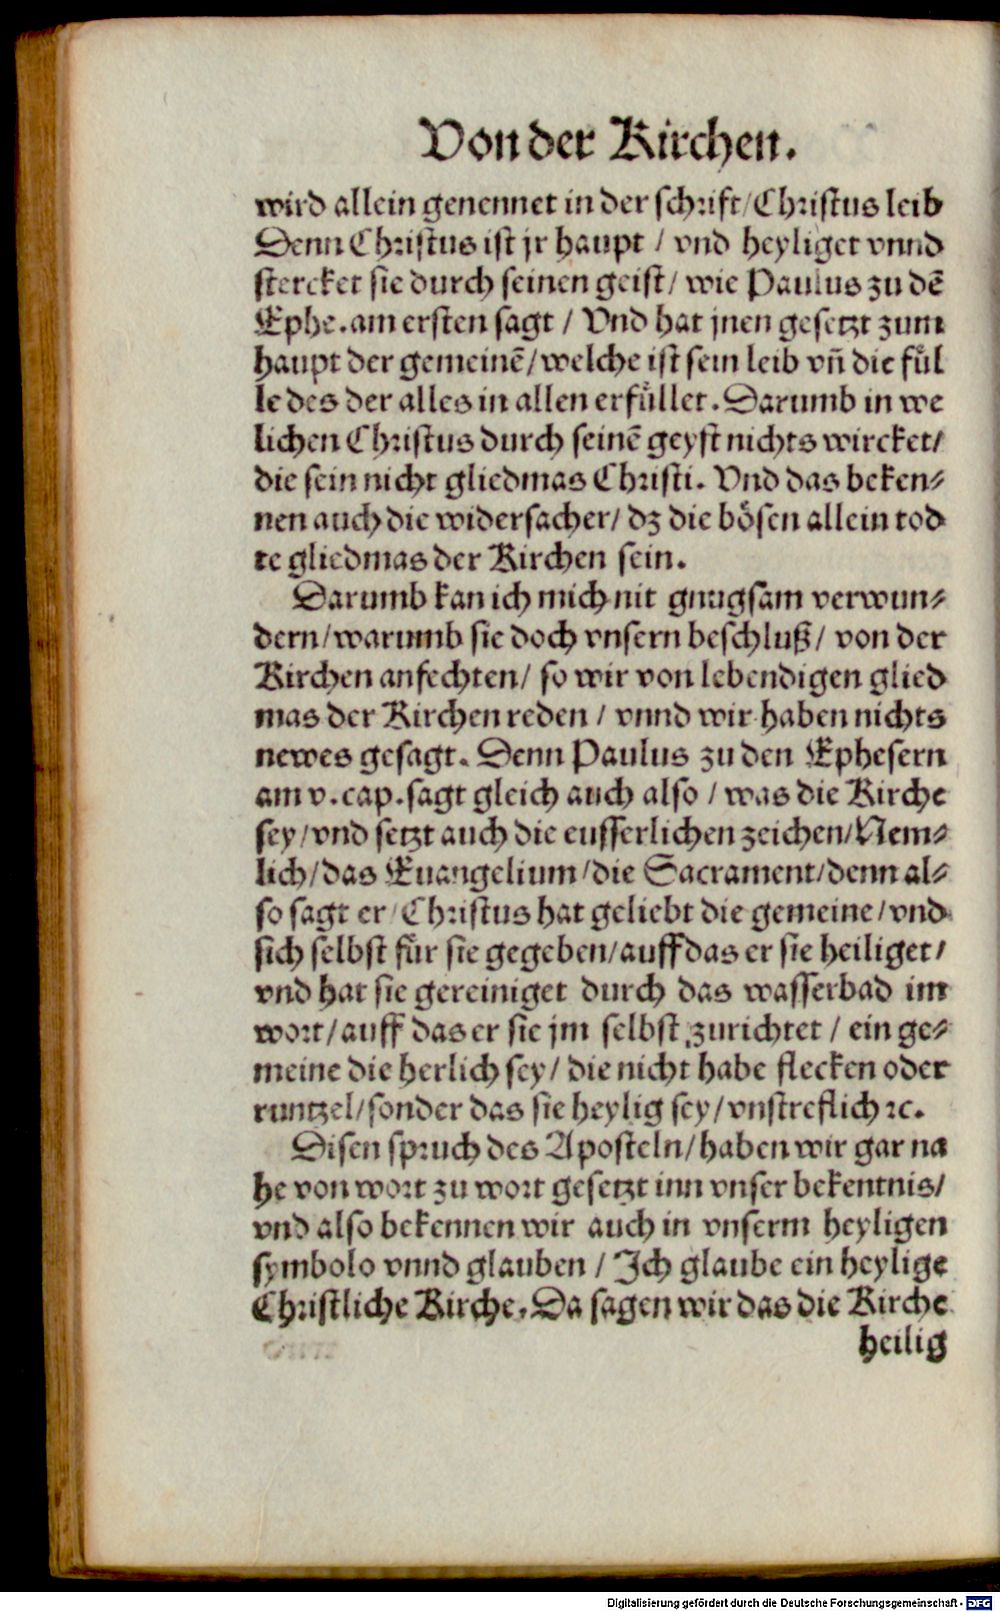 Von der Kirchen.
wird allein genennet in der schrift/Christus leib
Denn Christus ist jr haupt / vnd heyliget vnnd
stercket sie durch seinen geist/ wie Paulus zu dē
Ephe. am ersten sagt / Vnd hat jnen gesetzt zum
haupt der gemeinē/welche ist sein leib vn̄ die fuͤl
le des der alles in allen erfuͤllet. Darumb in we
lichen Christus durch seinē geyst nichts wircket/
die sein nicht gliedmas Christi. Vnd das beken⸗
nen auch die widersacher/ dz die boͤsen allein tod
te gliedmas der Kirchen sein.
Darumb kan ich mich nit gnugsam verwun⸗
dern/warumb sie doch vnsern beschluß/ von der
Kirchen anfechten/ so wir von lebendigen glied
mas der Kirchen reden / vnnd wir haben nichts
newes gesagt. Denn Paulus zu den Ephesern
am v. cap. sagt gleich auch also / was die Kirche
sey/vnd setzt auch die eusserlichen zeichen/Nem⸗
lich/das Euangelium/die Sacrament/denn al⸗
so sagt er/Christus hat geliebt die gemeine/vnd
sich selbst fuͤr sie gegeben/auff das er sie heiliget/
vnd hat sie gereiniget durch das wasserbad im
wort/auff das er sie jm selbst zurichtet / ein ge⸗
meine die herlich sey/ die nicht habe flecken oder
runtzel/sonder das sie heylig sey/vnstreflich ꝛc.
Disen spruch des Aposteln/haben wir gar na
he von wort zu wort gesetzt inn vnser bekentnis/
vnd also bekennen wir auch in vnserm heyligen
symbolo vnnd glauben / Ich glaube ein heylige
Christliche Kirche. Da sagen wir das die Kirche
heilig
Digitalisierung gefördert durch die Deutsche Forschungsgemeinschaft - DFG